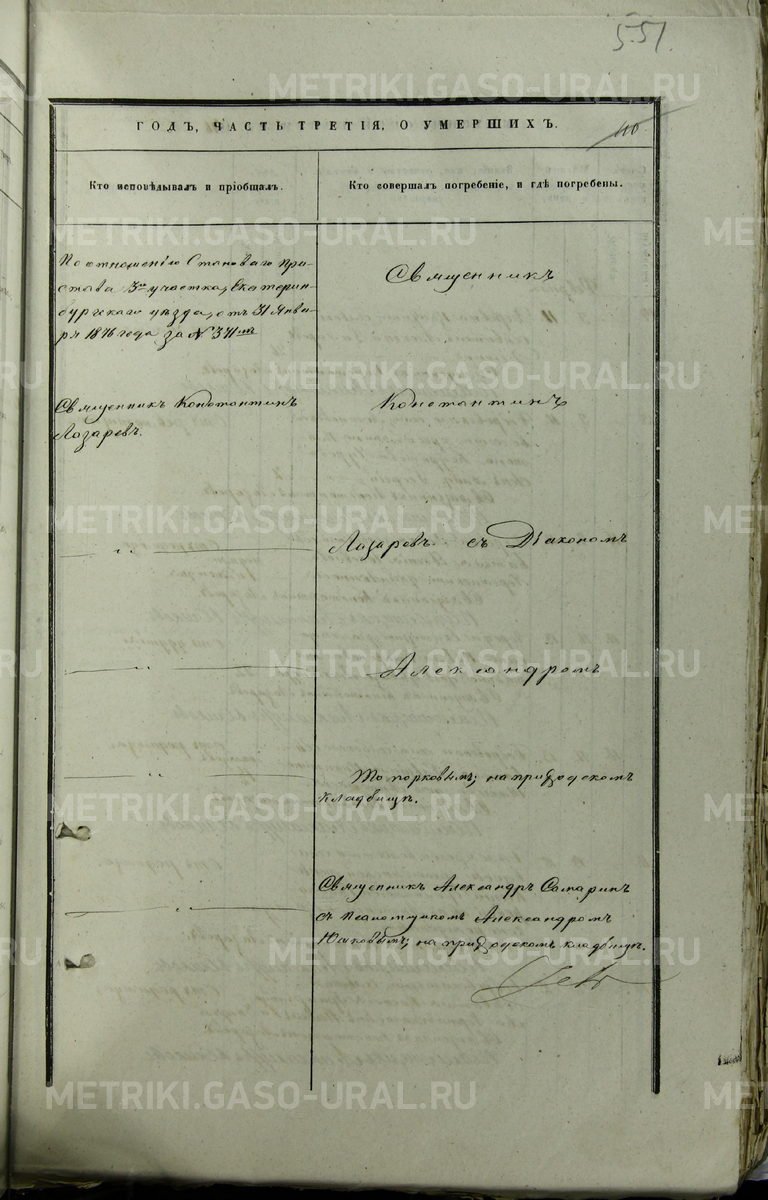 551.
METRIKI.GASO-URAL.RU
ГОДЪ, ЧАСТЬ ТРЕТІЯ, О УМЕРШИХЪ.
110.
Кто исповѣдывалъ и пріобщалъ.
Кто совершалъ погребеніе, и гдѣ погребены.
По отношенію Становаго При-
става 3го участка, Екатерин-
бургскаго уѣзда, отъ 31 Янва-
ря 1876 года за №
Священникъ Константинъ
Лазаревъ.
— „ —
— „ —
— „ —
— „ —
Священникъ
Константинъ
Лазаревъ съ Діакономъ
Александромъ
Топорковымъ; на приходскомъ
кладбищѣ.
Священникъ Александръ Самаринъ
съ Псаломщикомъ Александромъ
на приходскомъ кладбищѣ.